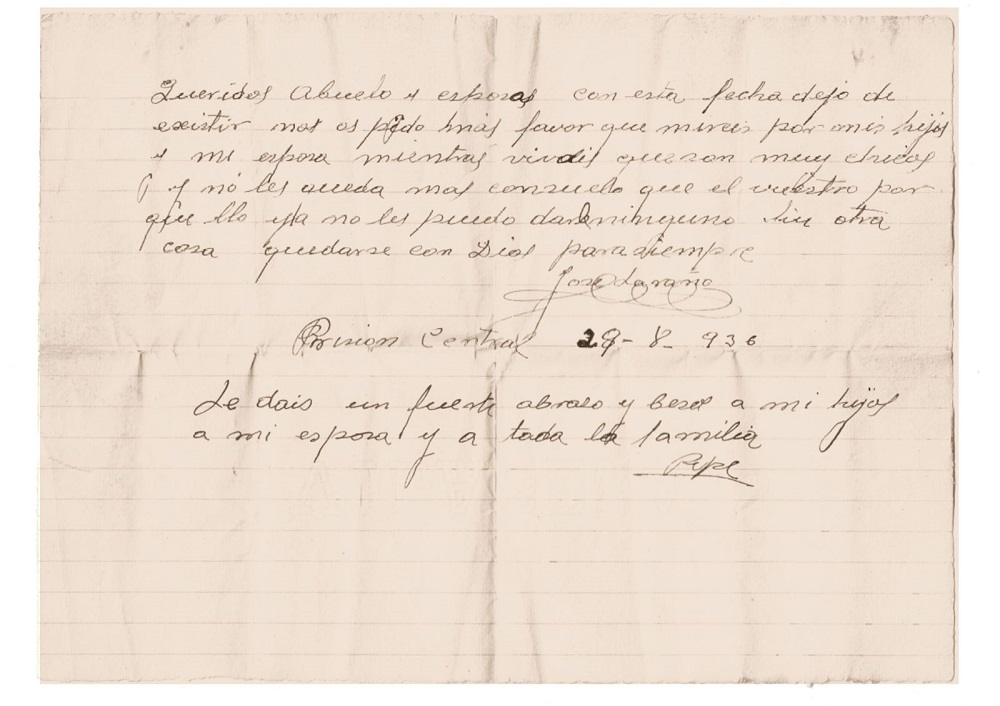 Queridos Abuelo y esposas con esta fecha dejo de
existir nos os pido más favor que mireis por mis hijos
y mi esposa mientras vivdis que son muy chicos
y nó les queda mas consuelo que el vuestro por
que llo ya no les puedo dar ninguno Sin otra
cosa quedarse con Dios para siempre
Jose
Prision Central 29-8-936
Le dais un fuerte abraso y besos a mi hijos
a mi esposa y a toda la familia
Pepe